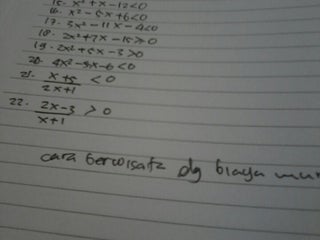 15. x² + x - 12 < 0
16. x² - 5x + 6 < 0
17. 3x² - 11x - 4 < 0
18. 2x² + 7x - 15 ≥ 0
19. 2x² + 5x - 3 > 0
20. 4x² - 5x - 6 < 0
21. x + 5 / 2x + 1 < 0
22. 2x - 3 / x + 1 > 0
cara berwisata dg biaya